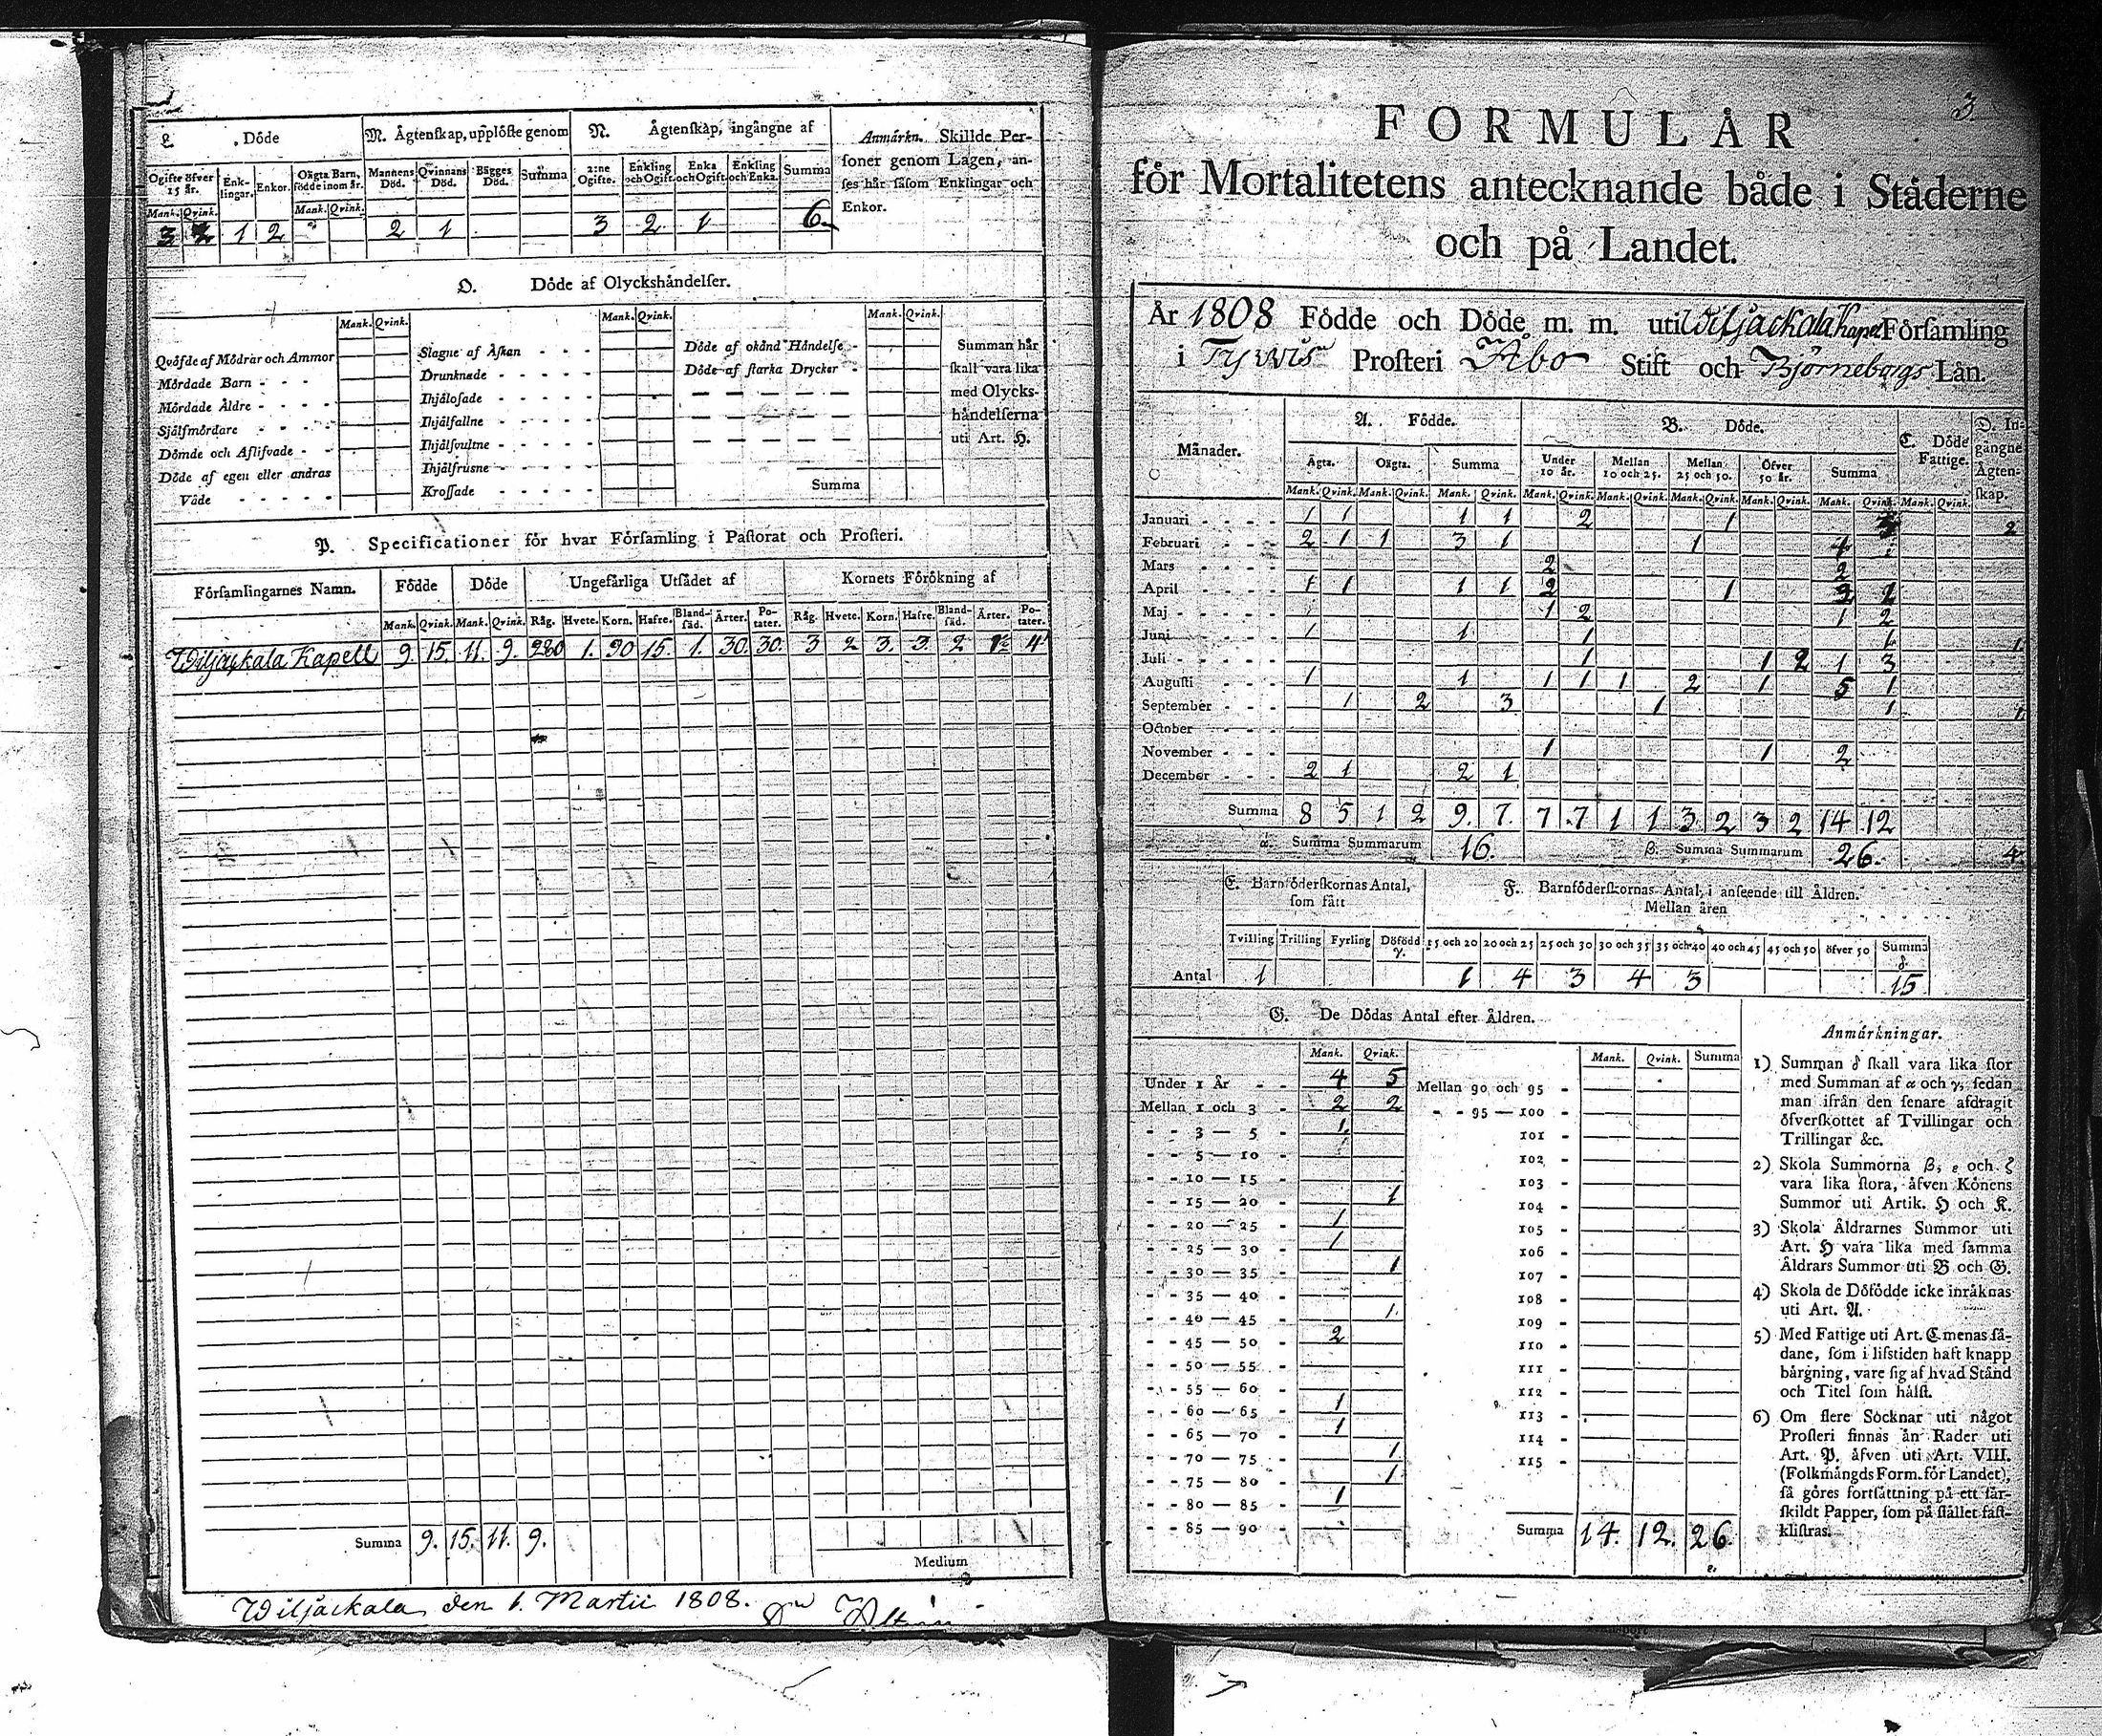 L. Döde
M. Ägtenskap, upplöste genom
N. Ägtenskap, ingångne af
Anmärkn. Skillde Per-
soner genom Lagen, an-
ses här såsom Enklingar och
Enkor.
Ogifte öfver 15 år. Enk-lingar. Enkor. Oägta Barn, födde inom år. Mannens Död. Qvinnans Död. Bägges Död. Summa 2:ne Ogifte. Enkling och Ogift. Enka och Ogift. Enkling och Enka. Summa
Mank. Qvink. Mank. Qvink.
3 1 2 2 1 3 2 1 6
O. Döde af Olyckshändelser.
Mank. Qvink. Mank. Qvink. Mank. Qvink.
Qväfde af Mödrar och Ammor
Mördade Barn
Mördade Äldre
Självmördare
Dömde och Aflifvade
Döde af egen eller andras
Våde
Slagne af Åskan
Drunknade
Ihjälosade
Ihjälfallne
Ihjälsvultne
Ihjälfrusne
Krossade
Döde af okänd Händelse
Döde af starka Drycker
Summa
Summan här
skall vara lika
med Olycks-
händelserna
uti Art. H.
P. Specificationer för hvar Församling i Pastorat och Prosteri.
Församlingarnes Namn. Födde Döde Ungefärliga Utsädet af Kornets Förökning af
Mank. Qvink. Mank. Qvink. Råg. Hvete. Korn. Hafre. Bland-säd. Ärter. Po-tater. Råg. Hvete. Korn. Hafre. Bland-säd. Ärter. Po-tater.
Wiljackala Kapell 9. 15. 11. 9. 280 1. 90 15. 1. 30. 30. 3 2 3. 3. 2 1½ 4
Summa 9. 15. 11. 9.
Medium
Wiljackala den 1. Martii 1808.
3
FORMULÄR
för Mortalitetens antecknande både i Städerne
och på Landet.
År 1808 Födde och Döde m. m. uti Wiljackala Kapel Församling
i Tyrwis Prosteri Åbo Stift och Björneborgs Län.
Månader. A. Födde. B. Döde. C. Döde Fattige. D. In-gångne Ägten-skap.
Ägta. Oägta. Summa Under 10 år. Mellan 10 och 25. Mellan 25 och 50. Öfver 50 år. Summa
Mank. Qvink. Mank. Qvink. Mank. Qvink. Mank. Qvink. Mank. Qvink. Mank. Qvink. Mank. Qvink. Mank. Qvink. Mank. Qvink.
Januari 1 1 1 1 2 1 3 2
Februari 2 1 1 3 1 1 1
Mars 2 2
April 1 1 1 1 2 1 2 1
Maj 1 2 1 2
Juni 1 1 1 1 1
Juli 1 1 2 1 3
Augusti 1 1 1 1 1 2 1 5 1
September 1 2 3 1 1 1
October
November 1 1 2
December 2 1 2 1
Summa 8 5 1 2 9. 7. 7 7 1 1 3 2 3 2 14 12
α. Summa Summarum 16. β. Summa Summarum 26. 4
E. Barnföderskornas Antal,
som fått
F. Barnföderskornas Antal, i anseende till Åldren.
Mellan åren
Tvilling Trilling Fyrling Dödfödd γ. 15 och 20 20 och 25 25 och 30 30 och 35 35 och 40 40 och 45 45 och 50 öfver 50 Summa δ.
Antal 1 1 4 3 4 3 15
G. De Dödas Antal efter Åldren.
Mank. Qvink. Mank. Qvink. Summa
Under 1 År 4 5
Mellan 1 och 3 2 2
3 — 5 1
5 — 10
10 — 15
15 — 20 1
20 — 25 1
25 — 30 1
30 — 35 1
35 — 40
40 — 45 1
45 — 50 2
50 — 55
55 — 60
60 — 65 1
65 — 70 1
70 — 75 1
75 — 80 1
80 — 85 1
85 — 90
Mellan 90 och 95
95 — 100
101
102
103
104
105
106
107
108
109
110
111
112
113
114
115
Summa 14. 12. 26
Anmärkningar.
1) Summan δ skall vara lika stor
med Summan af α och γ, sedan
man ifrån den senare afdragit
öfverskottet af Tvillingar och
Trillingar &c.
2) Skola Summorna β, ε och ζ
vara lika stora, äfven Könens
Summor uti Artik. H och K.
3) Skola Åldrarnes Summor uti
Art. H vara lika med samma
Åldrars Summor uti B och G.
4) Skola de Döfödde icke inräknas
uti Art. A.
5) Med Fattige uti Art. C menas så-
dane, som i lifstiden haft knapp
bärgning, vare sig af hvad Stånd
och Titel som hälst.
6) Om flere Socknar uti något
Prosteri finnas än Rader uti
Art. P. äfven uti Art. VIII.
(Folkmängds Form. för Landet),
så göres fortsättning på ett sär-
skildt Papper, som på stället fast-
klistras.